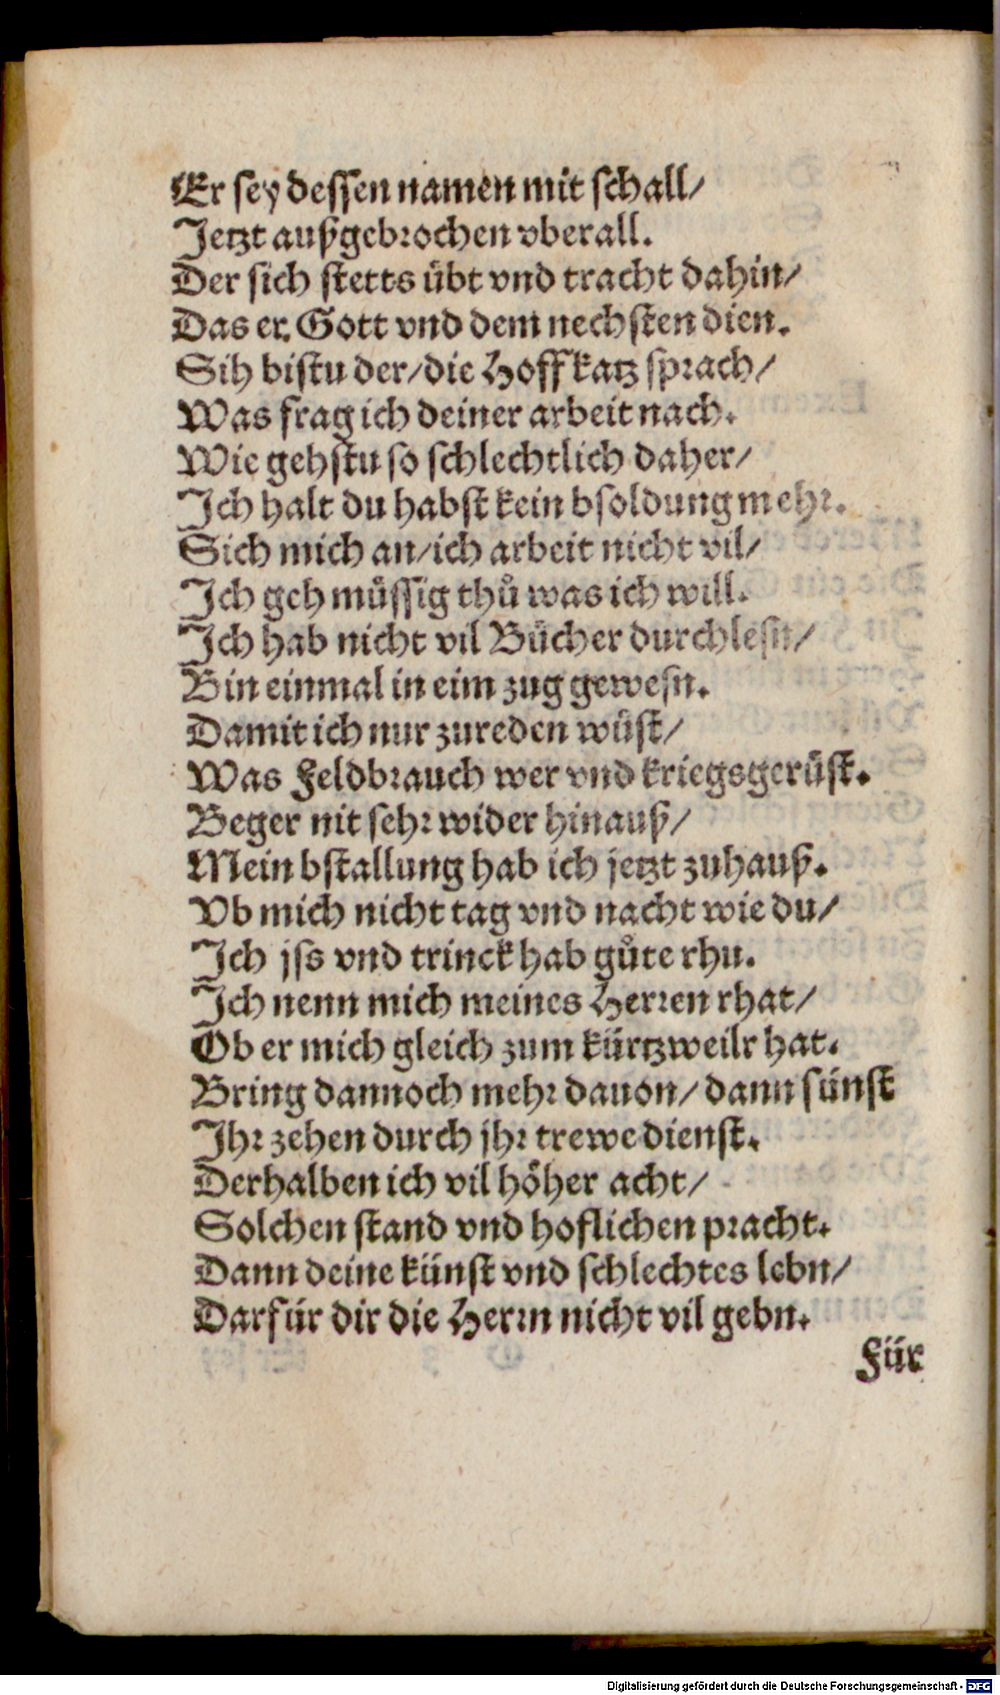 Er sey dessen namen mit schall/
Jetzt außgebrochen vberall.
Der sich stetts übt vnd tracht dahin/
Das er Gott vnd dem nechsten dien.
Sih bistu der/die Hoffkatz sprach/
Was frag ich deiner arbeit nach.
Wie gehstu so schlechtlich daher/
Ich halt du habst kein bsoldung mehr.
Sich mich an/ich arbeit nicht vil/
Ich geh müssig thů was ich will.
Ich hab nicht vil Bücher durchlesn/
Bin einmal in eim zug gewesn.
Damit ich nur zureden wüst/
Was Feldbrauch wer vnd kriegsgerüst.
Beger nit sehr wider hinauß/
Mein bstallung hab ich jetzt zuhauß.
Vb mich nicht tag vnd nacht wie du/
Ich jss vnd trinck hab gůte rhu.
Ich nenn mich meines Herren rhat/
Ob er mich gleich zum kürtzweilr hat.
Bring dannoch mehr dauon/ dann sünst
Ihr zehen durch jhr trewe dienst.
Derhalben ich vil höher acht/
Solchen stand vnd hoflichen pracht.
Dann deine künst vnd schlechtes lebn/
Darfür dir die Herrn nicht vil gebn.
Für
Digitalisierung gefördert durch die Deutsche Forschungsgemeinschaft - DFG